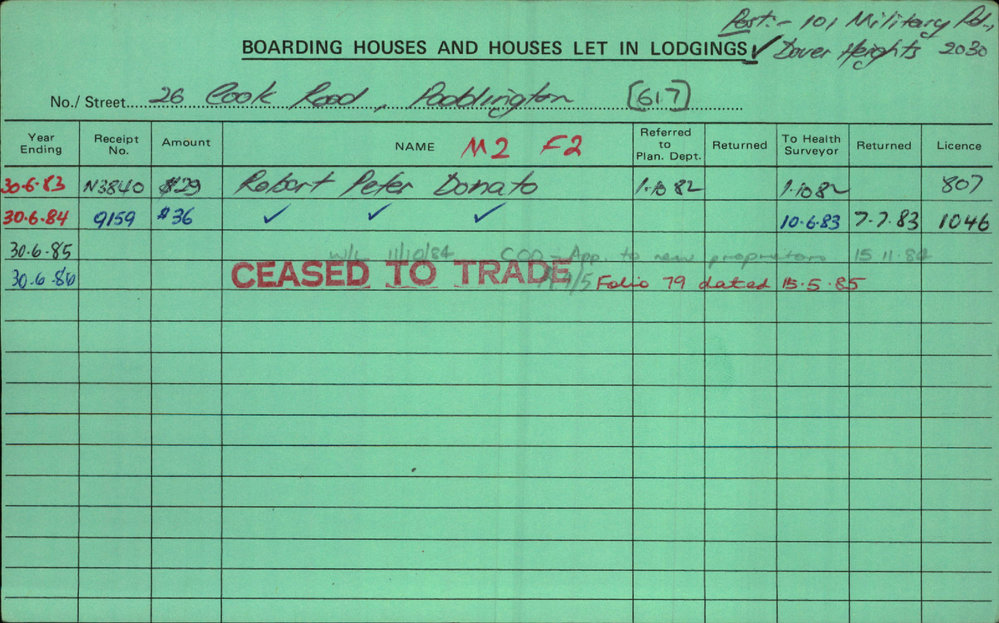 Post:- 101 Military Rd.,
BOARDING HOUSES AND HOUSES LET IN LODGINGS ✓ Dover Heights 2030
No./ Street 26 Cook Road, Paddington [617]
Year Ending Receipt No. Amount NAME M2 F2 Referred to Plan. Dept. Returned To Health Surveyor Returned Licence
30-6-83 N3840 $29 Robert Peter Donato 1.10.82 1.10.82 807
30.6.84 9159 $36 ✓ ✓ ✓ 10.6.83 7.7.83 1046
30.6.85 W/L 11/10/84 App. to new proprietors 15.11.84
30.6.86 CEASED TO TRADE Folio 79 dated 15.5.85